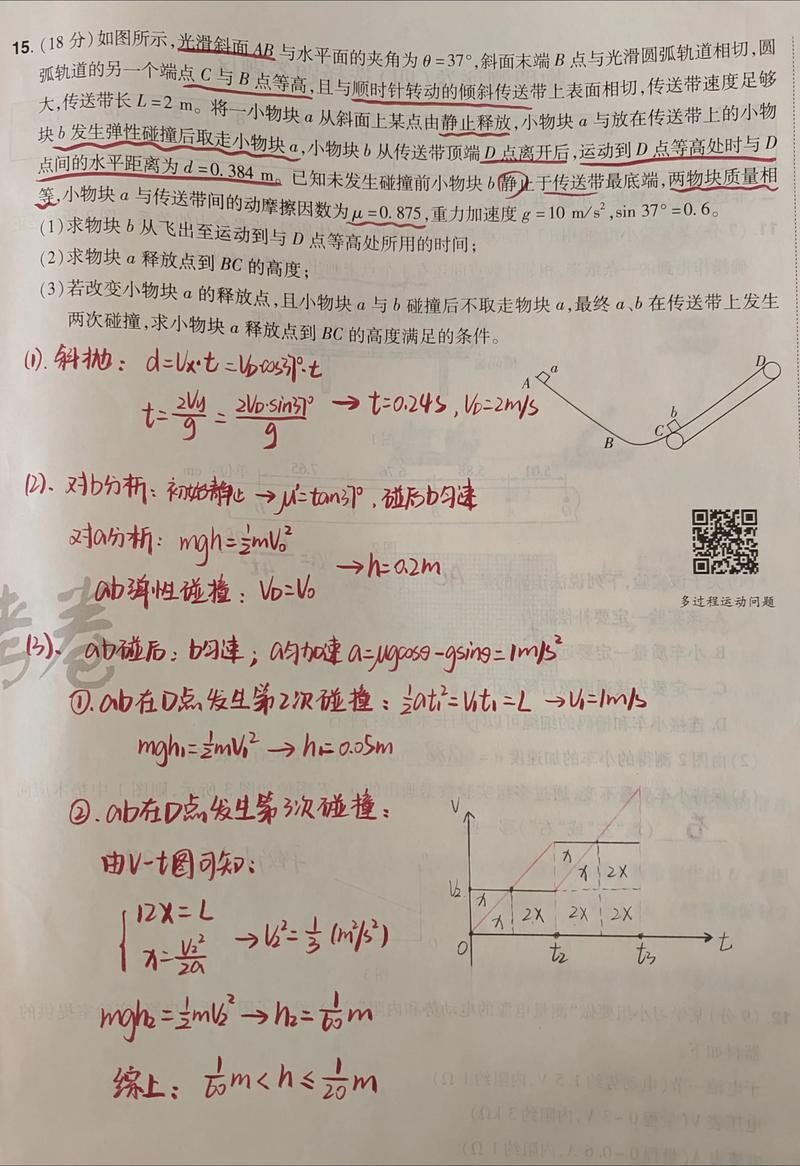 15. (18分)如图所示,光滑斜面AB与水平面的夹角为θ=37°,斜面末端B点与光滑圆弧轨道相切,圆
弧轨道的另一个端点C与B点等高,且与顺时针转动的倾斜传送带上表面相切,传送带速度足够
大,传送带长L=2 m。将一小物块a从斜面上某点由静止释放,小物块a与放在传送带上的小物
块b发生弹性碰撞后取走小物块a,小物块b从传送带顶端D点离开后,运动到D点等高处时与D
点间的水平距离为d=0.384 m。已知未发生碰撞前小物块b静止于传送带最底端,两物块质量相
等,小物块a与传送带间的动摩擦因数为μ=0.875,重力加速度g=10 m/s²,sin 37°=0.6。
(1)求物块b从飞出至运动到与D点等高处所用的时间;
(2)求物块a释放点到BC的高度;
(3)若改变小物块a的释放点,且小物块a与b碰撞后不取走物块a,最终a、b在传送带上发生
两次碰撞,求小物块a释放点到BC的高度满足的条件。
(1).斜抛: d=Vx·t=VD·cos37°·t
t=2Vy/g=2VD·sin37°/g → t=0.24s, VD=2m/s
A a B C b D
(2)、对b分析:初始静止→μ'=tan37°,碰后b匀速
对a分析: mgh=½mV₀²
→h=0.2m
ab弹性碰撞: VD=V₀
多过程运动问题
(3)、ab碰后:b匀速;a匀加速a=μgcosθ-gsinθ=1m/s²
①.ab在D点发生第2次碰撞:½at₁²=V₁t₁=L →V₁=1m/s
mgh₁=½mV₁² → h₁=0.05m
②.ab在D点发生第3次碰撞:
由V-t图可知:
12X=L
x=V₂²/2a
→V₂²=1/3 (m²/s²)
mgh₂=½mV₂² → h₂=1/60 m
综上: 1/60 m<h≤1/20 m
V
x x 2X
V₂
x x 2X 2X 2X
0 t₂ t₃ t